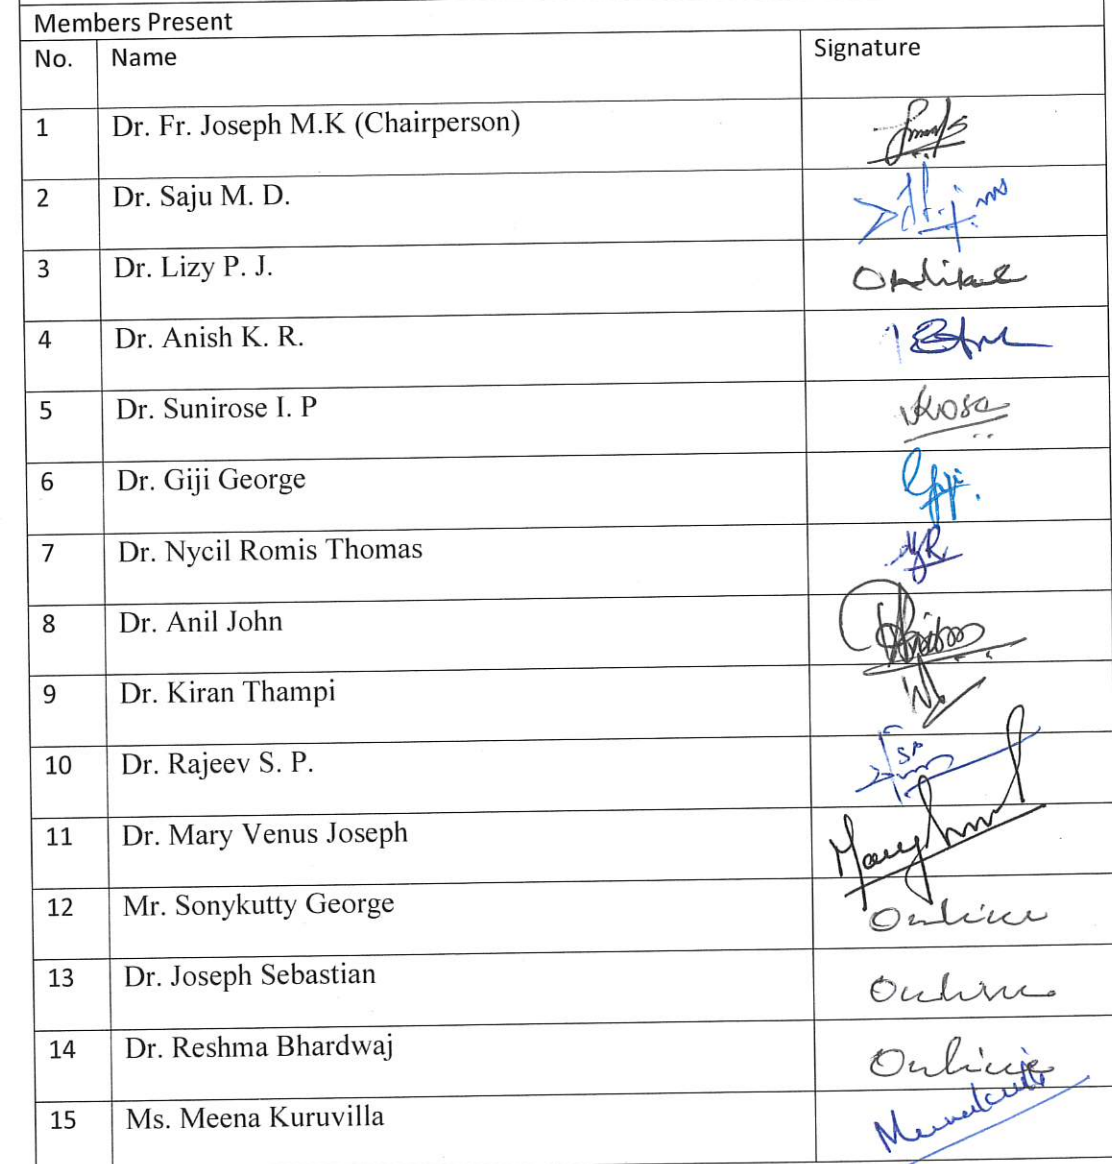 Members Present
No. Name Signature
1 Dr. Fr. Joseph M.K (Chairperson)
2 Dr. Saju M. D.
3 Dr. Lizy P. J. Online
4 Dr. Anish K. R.
5 Dr. Sunirose I. P
6 Dr. Giji George
7 Dr. Nycil Romis Thomas
8 Dr. Anil John
9 Dr. Kiran Thampi
10 Dr. Rajeev S. P.
11 Dr. Mary Venus Joseph
12 Mr. Sonykutty George Online
13 Dr. Joseph Sebastian Online
14 Dr. Reshma Bhardwaj Online
15 Ms. Meena Kuruvilla